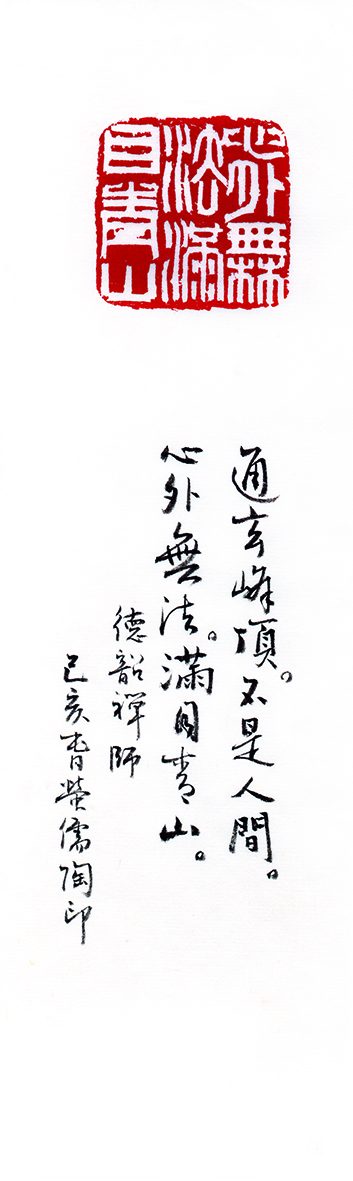 心外無
法滿
目青山
通玄峰頂。不是人間。
心外無法。滿目青山。
德韶禪師
己亥春儒陶印